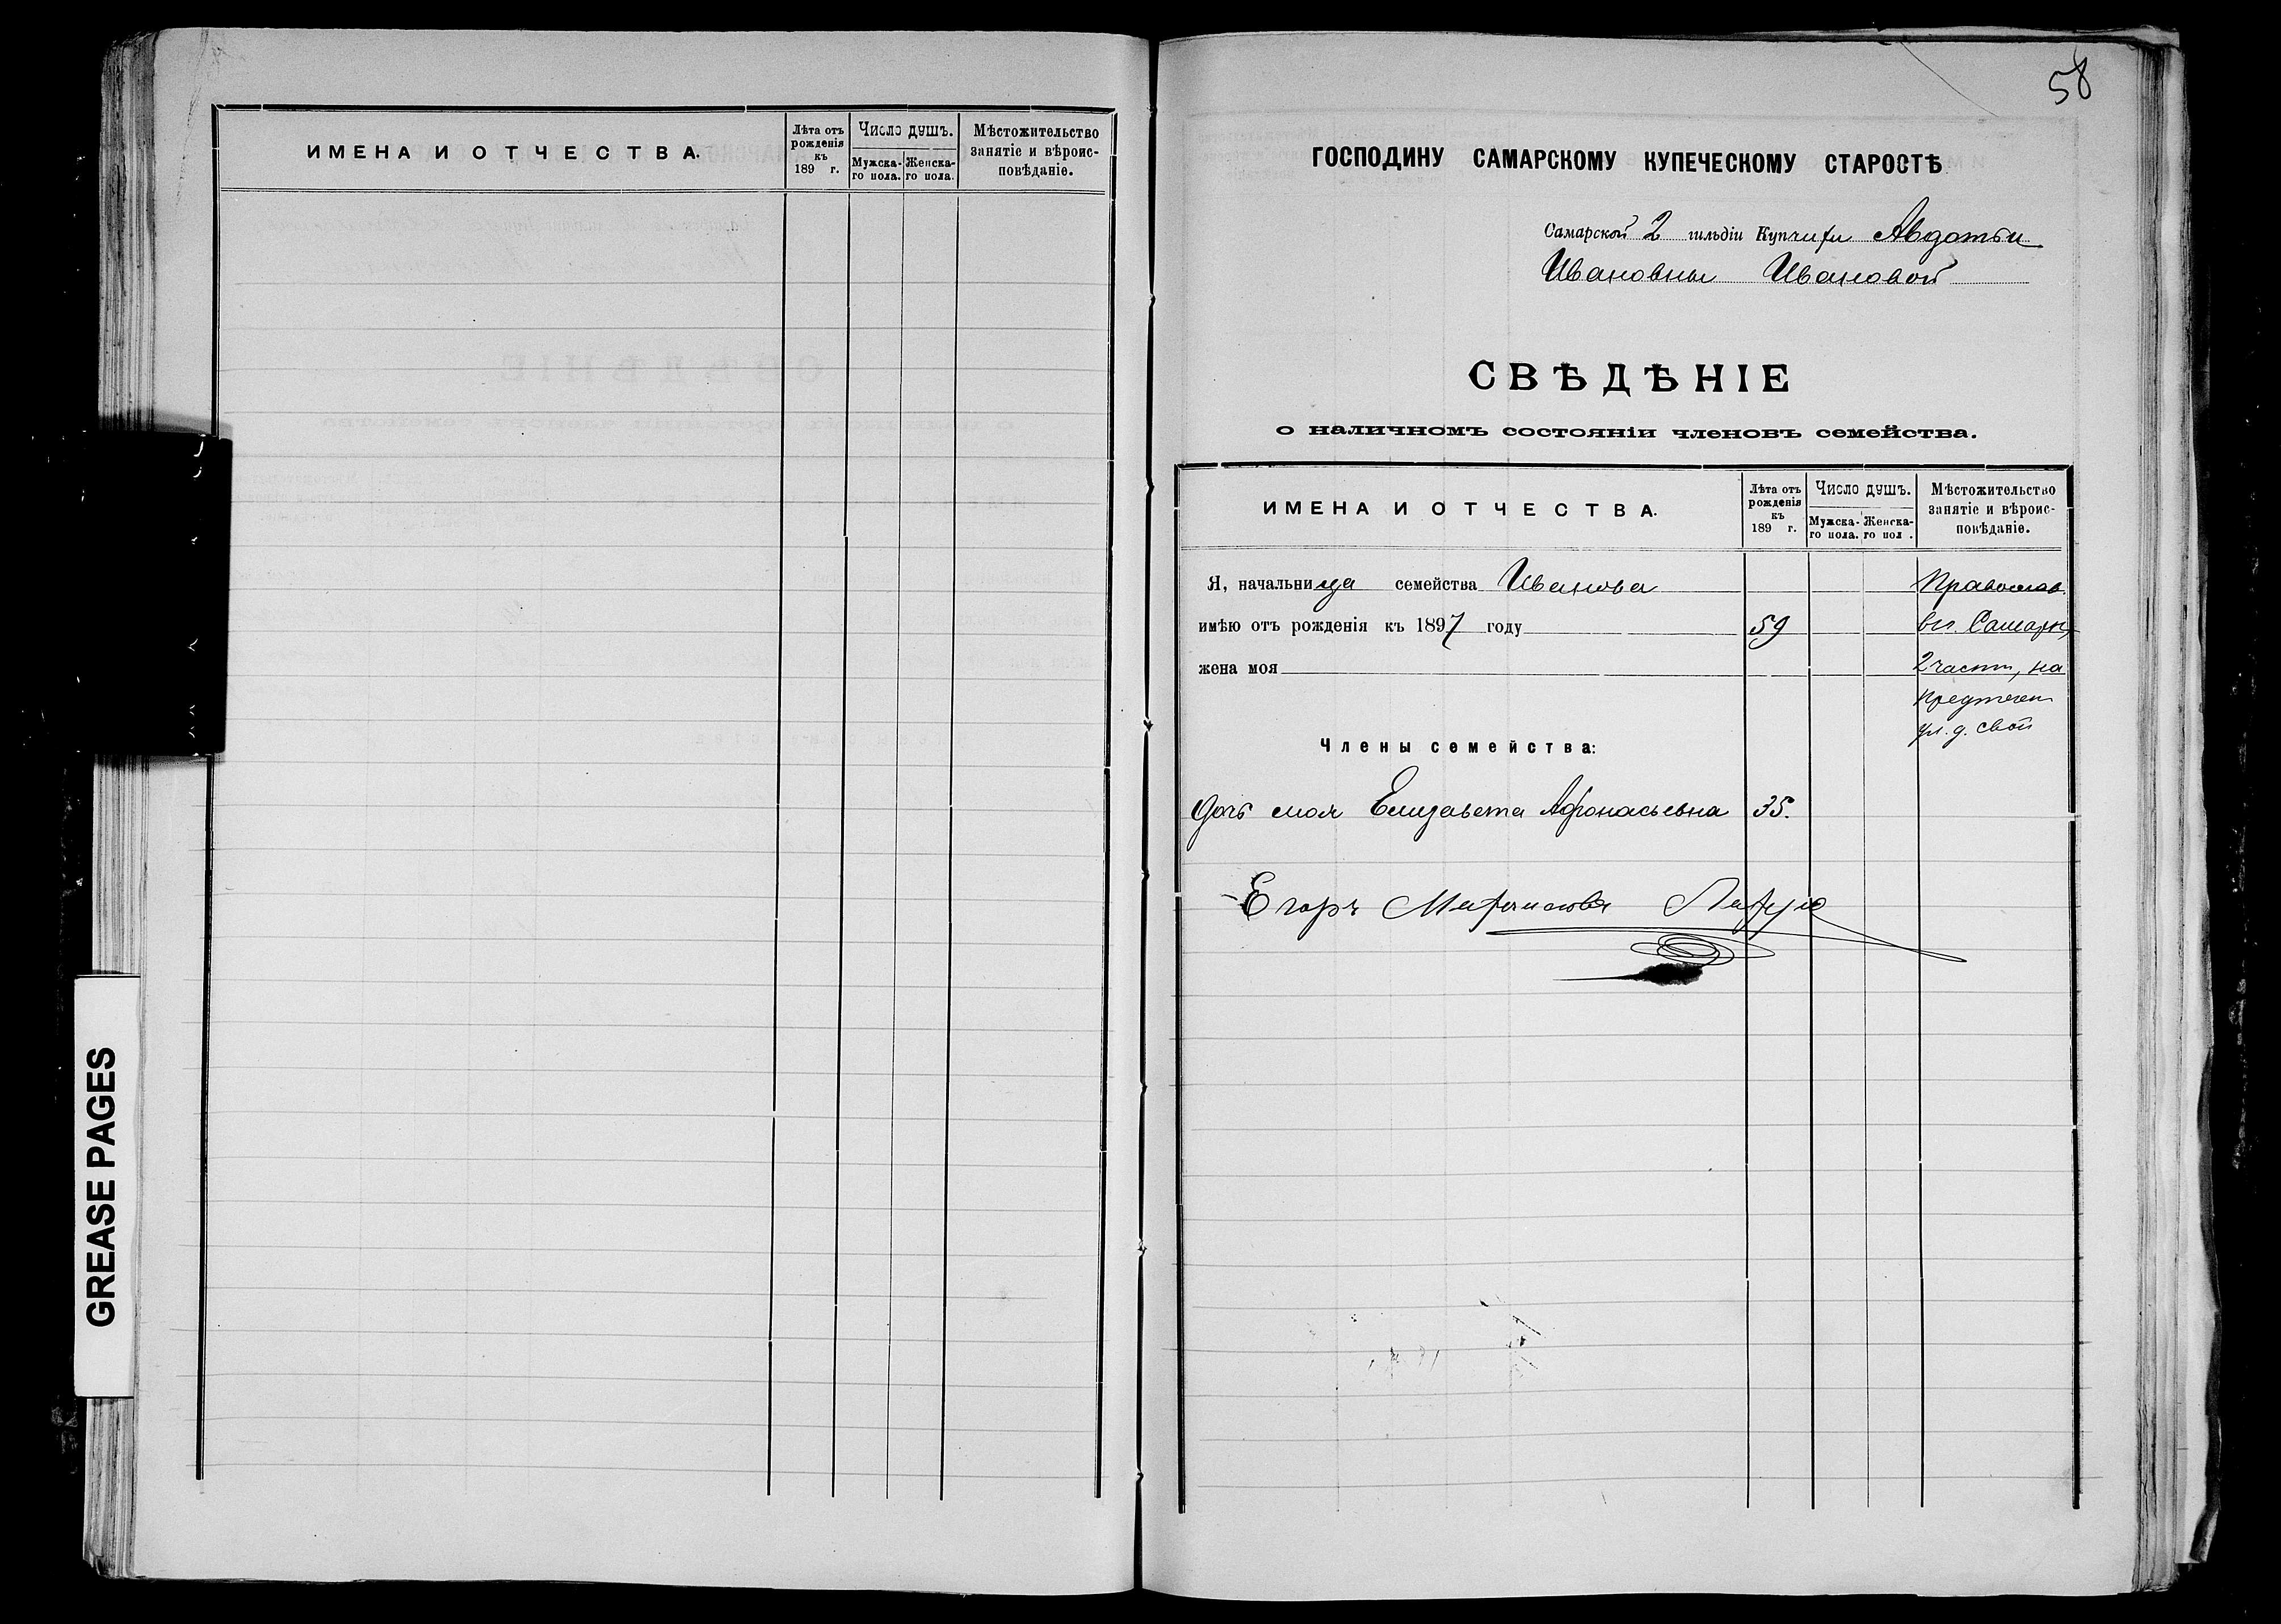 ИМЕНА И ОТЧЕСТВА.
Лѣта отъ рожденія къ 189 г.
Число душъ.
Мужска-го пола.
Женска-го пола.
Мѣстожительство занятіе и вѣроис-повѣданіе.
GREASE PAGES
58
ГОСПОДИНУ САМАРСКОМУ КУПЕЧЕСКОМУ СТАРОСТѢ
Самарской 2 гильдіи Купчихи Авдотьи
Ивановны Ивановой
СВѢДѢНІЕ
о наличномъ состояніи членовъ семейства.
ИМЕНА И ОТЧЕСТВА.
Лѣта отъ рожденія къ 189 г.
Число душъ.
Мужска-го пола.
Женска-го пол .
Мѣстожительство занятіе и вѣроис-повѣданіе.
Я, начальница семейства Иванова Православ.
имѣю отъ рожденія къ 1897 году 59 въ г. Самарѣ,
жена моя 2 части, на
Предтечен
ул. д. свой
Члены семейства:
Дочь моя Елизавета Афонасьевна 35.
Егоръ